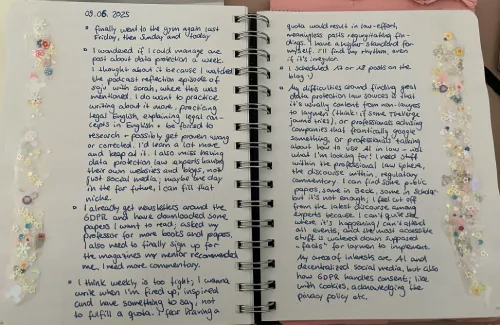 09.06. 2025
• finally went to the gym again last
Friday, then Sunday and today
• I wondered if I could manage one
post about data protection a week.
I thought about it because I watched
the podcast reflection episode of
soju with sarah, where this was
mentioned. I do want to practice
writing about it more, practicing
legal English, explaining legal con-
cepts in English + be forced to
research + possibly get proven wrong
or corrected. I'd learn a lot more
and keep at it. I also miss having
data protection law experts having
their own websites and blogs, not
just social media; maybe one day
in the far future, I can fill that
niche.
• I already get newsletters around the
GDPR and have downloaded some
papers I want to read; asked my
professor for more books and papers.
I also need to finally sign up for
the magazines my mentor recommended
me. I need more commentary.
• I think weekly is too tight; I wanna
write when I'm fired up, inspired
and have something to say, not
to fulfill a quota. I fear having a
quota would result in low-effort,
meaningless posts regurgitating fin-
dings. I have a higher standard for
myself. I'll find my rhythm, even
if it's irregular.
• I scheduled posts on the
blog :)
• My difficulties around finding great
data protection law sources is that
it's usually content from non-lawyers
to laymen (think: if some
journo tries), or professionals advising
companies that frantically google
something, or professionals talking
about how to use AI in law - not
what I'm looking for! I need stuff
within the professional law sphere,
the discourse within, regulatory
commentary. I can find some public
papers, some in Beck, some in Scholar
but it's not enough; I feel cut off
from the latest discourse among
experts because I can't quite see
where it's happening. I can't attend
all events, and the most accessible
stuff is watered down supposed
"facts" for laymen to implement.
My areas of interests are AI and
decentralized social media, but also
how GDPR handles consent; like
with cookies, acknowledging the
privacy policy etc.